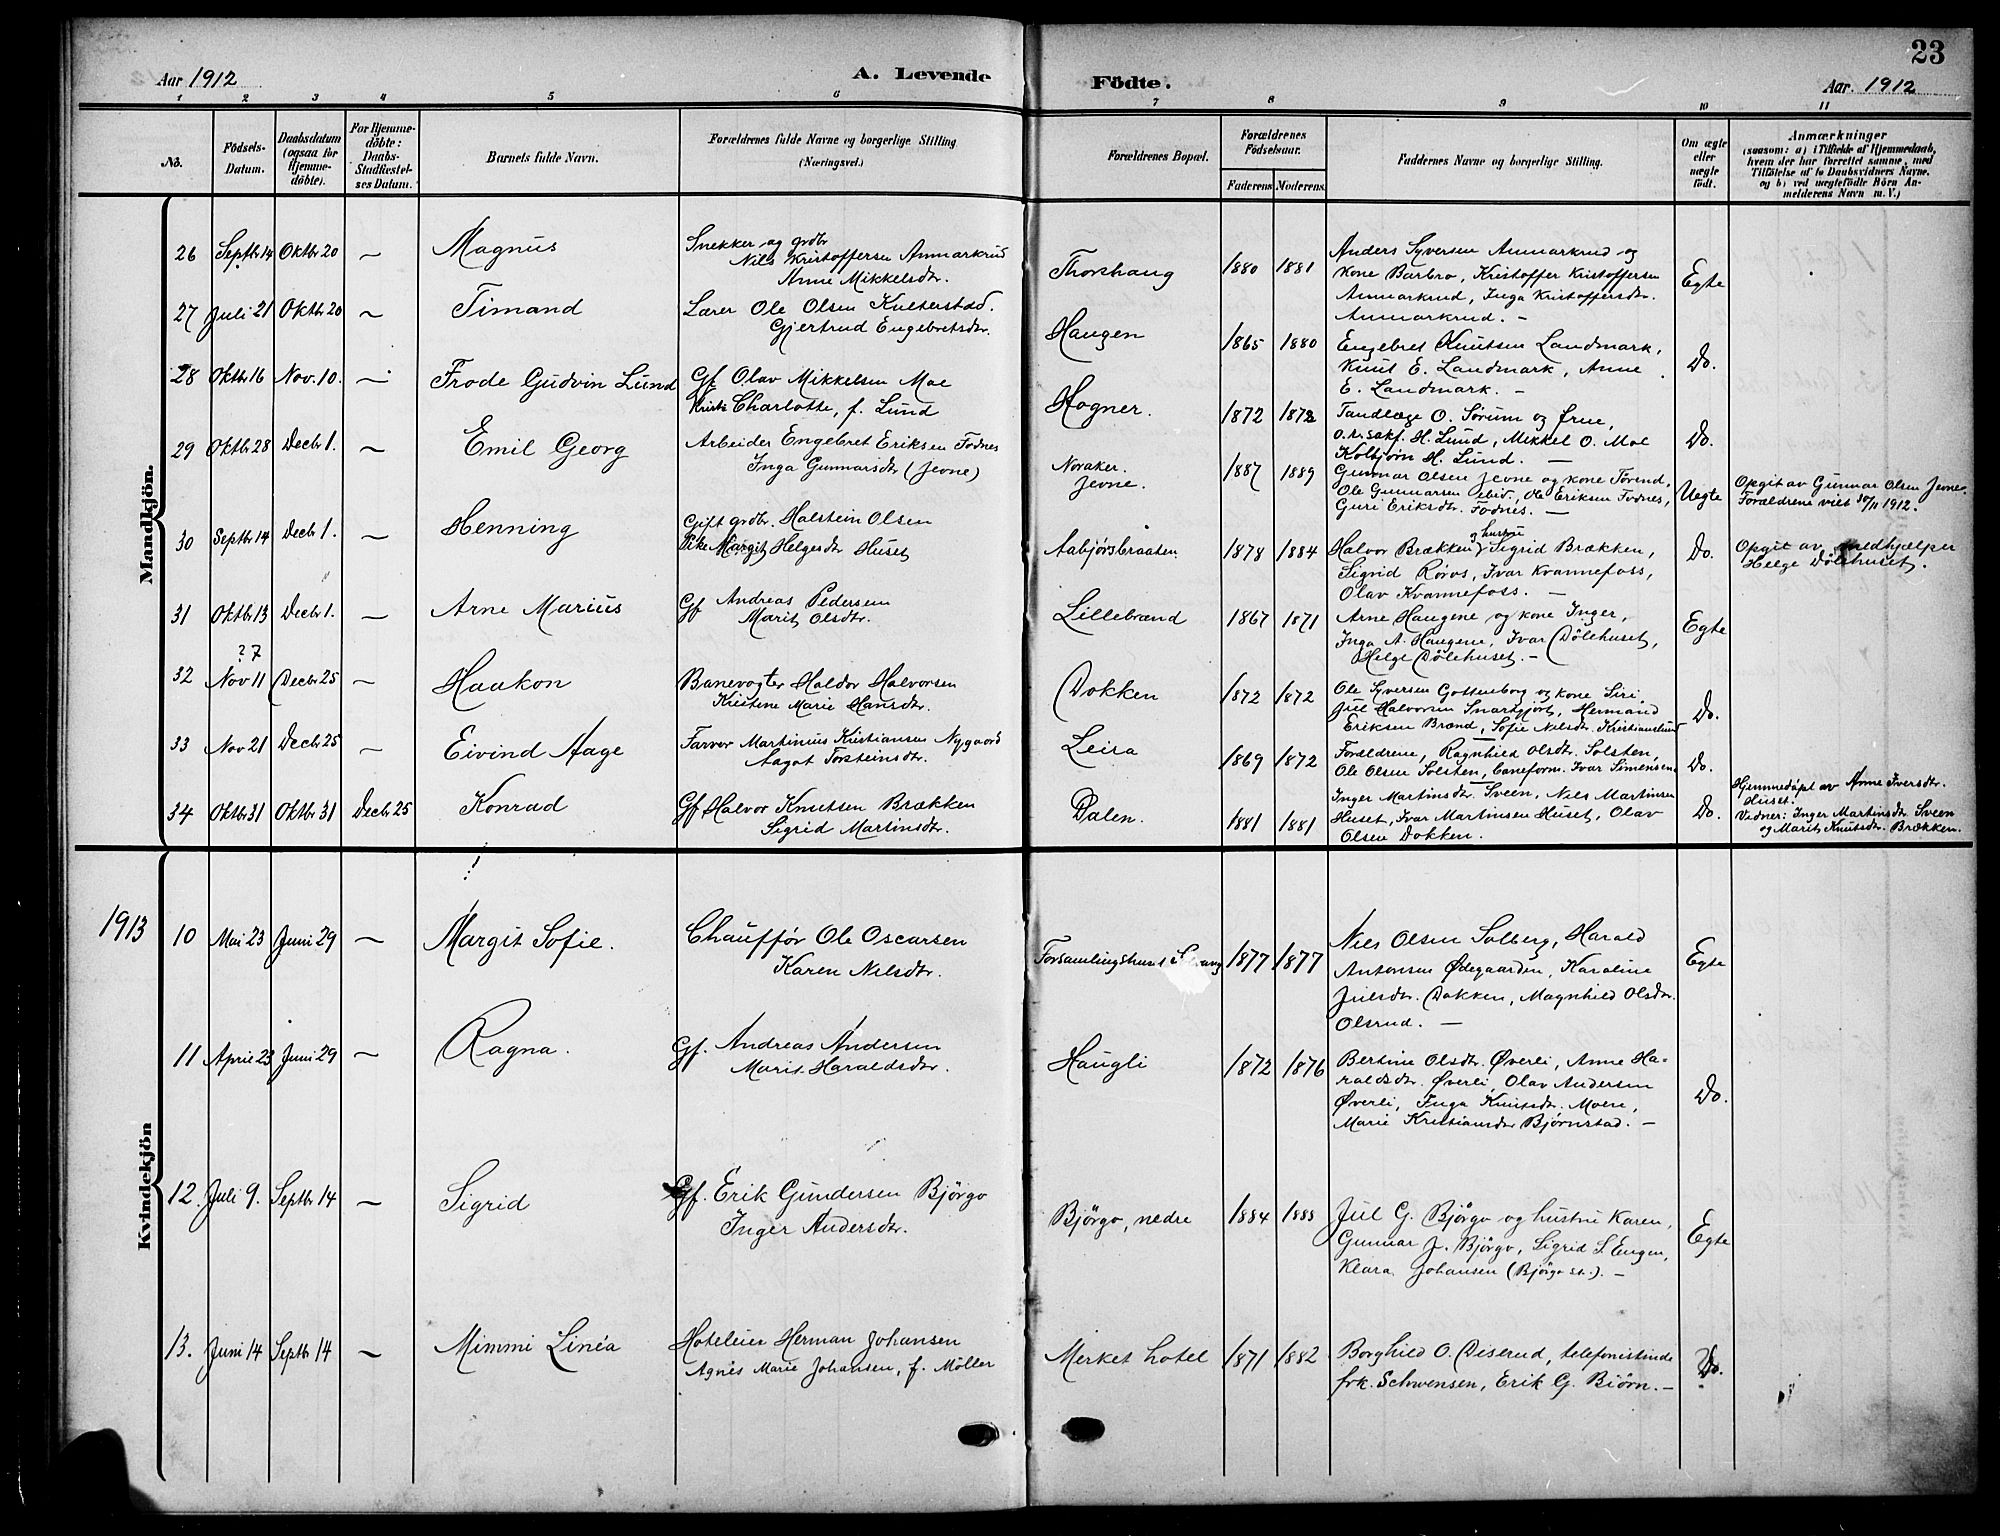 23
Aar 1912 A. Levende Födte. Aar. 1912
1 2 3 4 5 6 7 8 9 10 11
No.
Födsels-
Datum.
Daabsdatum
(ogsaa for
Hjemme-
döbte).
For Hjemme-
döbte:
Daabs-
Stadfæstel-
ses Datum.
Barnets fulde Navn.
Forældrenes fulde Navne og borgerlige Stilling
(Næringsvei.)
Forældrenes Bopæl.
Forældrenes
Födselsaar.
Faderens Moderens
Faddernes Navne og borgerlige Stilling.
Om ægte
eller
uægte
født.
Anmærkninger
(saasom: a) i Tilfælde af Hjemmedaab,
hvem der har forrettet samme, med
Tilföielse af to Daabsvidners Navne,
og b) ved uægtefödte Börn An-
melderens Navn m. V.)
Mandkjön.
26 Septbr 14 Oktbr 20 — Magnus
Snekker og grdbr
Nils Kristoffersen Anmarkrud
Anne Mikkelsdtr.
Thorshaug 1880 1881
Anders Syversen Anmarkrud og
kone Barbro, Kristoffer Kristoffersen
Anmarkrud, Inga Kristoffersdtr.
Anmarkrud. —
Egte
27 Juli 21 Oktbr 20 — Timand
Lærer Ole Olsen Kulterstad.
Gjertrud Engebretsdtr.
Haugen 1865 1880
Engebret Knutsen Landmark,
Knut E. Landmark, Anne
E. Landmark. —
Do.
28 Oktbr 16 Nov. 10. — Frode Gudvin Lund
Gf Olav Mikkelsen Moe
Charlotte, f. Lund
Hogner. 1872 1872
Tandlæge O. Sørum og frue,
o.r.sakf. H. Lund, Mikkel O. Moe
Kolbjørn H. Lund. —
Do.
29 Oktbr 28 Decbr 1. — Emil Georg
Arbeider Engebret Eriksen Fodnes
Inga Gunnarsdtr (Jevne)
Noraker.
Jevne.
1887 1889
Gunnar Olsen Jevne og kone Tørend,
Ole Gunnarsen ibid., Ole Eriksen Fodnes,
Guri Eriksdtr. Fodnes. —
Uegte
Opgit av Gunnar Olsen Jevne.
Forældrene viet 30/11 1912.
30 Septbr 14 Decbr 1. — Henning
Gift grdbr. Halstein Olsen
Pike Margit Helgesdtr Huset
Aabjørsbraaten 1878 1884
og hustru
Halvor Brækken, Sigrid Brækken,
Sigrid Røros, Ivar Kvannefoss,
Olav Kvannefoss. —
Do.
Opgit av medhjælper
Helge Dölehuset.
31 Oktbr 13 Decbr 1. — Arne Marius
Gf Andreas Pedersen
Marit Olsdtr.
Lillebrænd 1867 1871
Arne Haugene og kone Inger,
Inga A. Haugene, Ivar Dölehuset,
Helge Dölehuset. —
Egte
? 7
32 Nov 11 Decbr 25 — Haakon
Banevogter Haldor Halvorsen
Kristene Marie Hansdtr.
Dokken 1872 1872
Ole Syversen Gottenborg og kone Siri,
Jul Halvorsen Snartgjort, Hermand
Eriksen Brænd, Sofie Nilsdtr. Kristianslund
Do.
33 Nov 21 Decbr 25 — Eivind Aage
Farver Martinius Kristiansen Nygaard
Aagot Torsteinsdtr.
Leira 1869 1872
Forældrene, Ragnhild Olsdtr. Solsten
Ole Olsen Solsten, baneform. Ivar Simensen
Do.
34 Oktbr 31 Oktbr 31 Decbr 25 Konrad
Gf Halvor Knutsen Brækken
Sigrid Martinsdtr.
Dalen. 1881 1881
Inger Martinsdtr. Sveen, Nils Martinsen
Huset, Ivar Martinsen Huset, Olav
Olsen Dokken.
Do.
Hjemmedøpt av Anne Iversdtr.
Huset.
Vidner: Inger Martinsdtr Sveen
og Marit Knutsdtr. Brækken.
Kvindekjön
1913 10 Mai 23 Juni 29 — Margit Sofie.
Chauffør Ole Oscarsen
Karen Nilsdtr.
Forsamlingshuset 1877 1877
Nils Olsen Solberg, Harald
Antonsen Ødegaarden, Karoline
Julsdtr. Dokken, Magnhild Olsdtr.
Olsrud. —
Egte
11 April 23 Juni 29 — Ragna.
Gf. Andreas Andersen
Marit Haraldsdtr.
Haugli 1872 1876
Bertine Olsdtr. Øverli, Anne Ha-
raldsdtr. Øverli, Olav Andersen
Øverli, Inga Knutsdtr. Moen,
Marie Kristiansdtr Bjørnstad. —
Do.
12. Juli 9. Septbr 14 — Sigrid
Gf. Erik Gundersen Bjørgo
Inger Andersdtr.
Bjørgo, nedre 1884 1888
Jul G. Bjørgo og hustru Karen,
Gunnar J. Bjørgo, Sigrid S. Engen,
Klara Johansen (Bjørgo st.). —
Egte
13. Juni 14 Septbr 14 — Mimmi Linéa
Hoteleier Herman Johansen
Agnes Marie Johansen, f. Möller
Merket hotel 1871 1882
Borghild O. Diserud, telefonistinde
frk. Schwensen, Erik G. Biörn. —
Do.